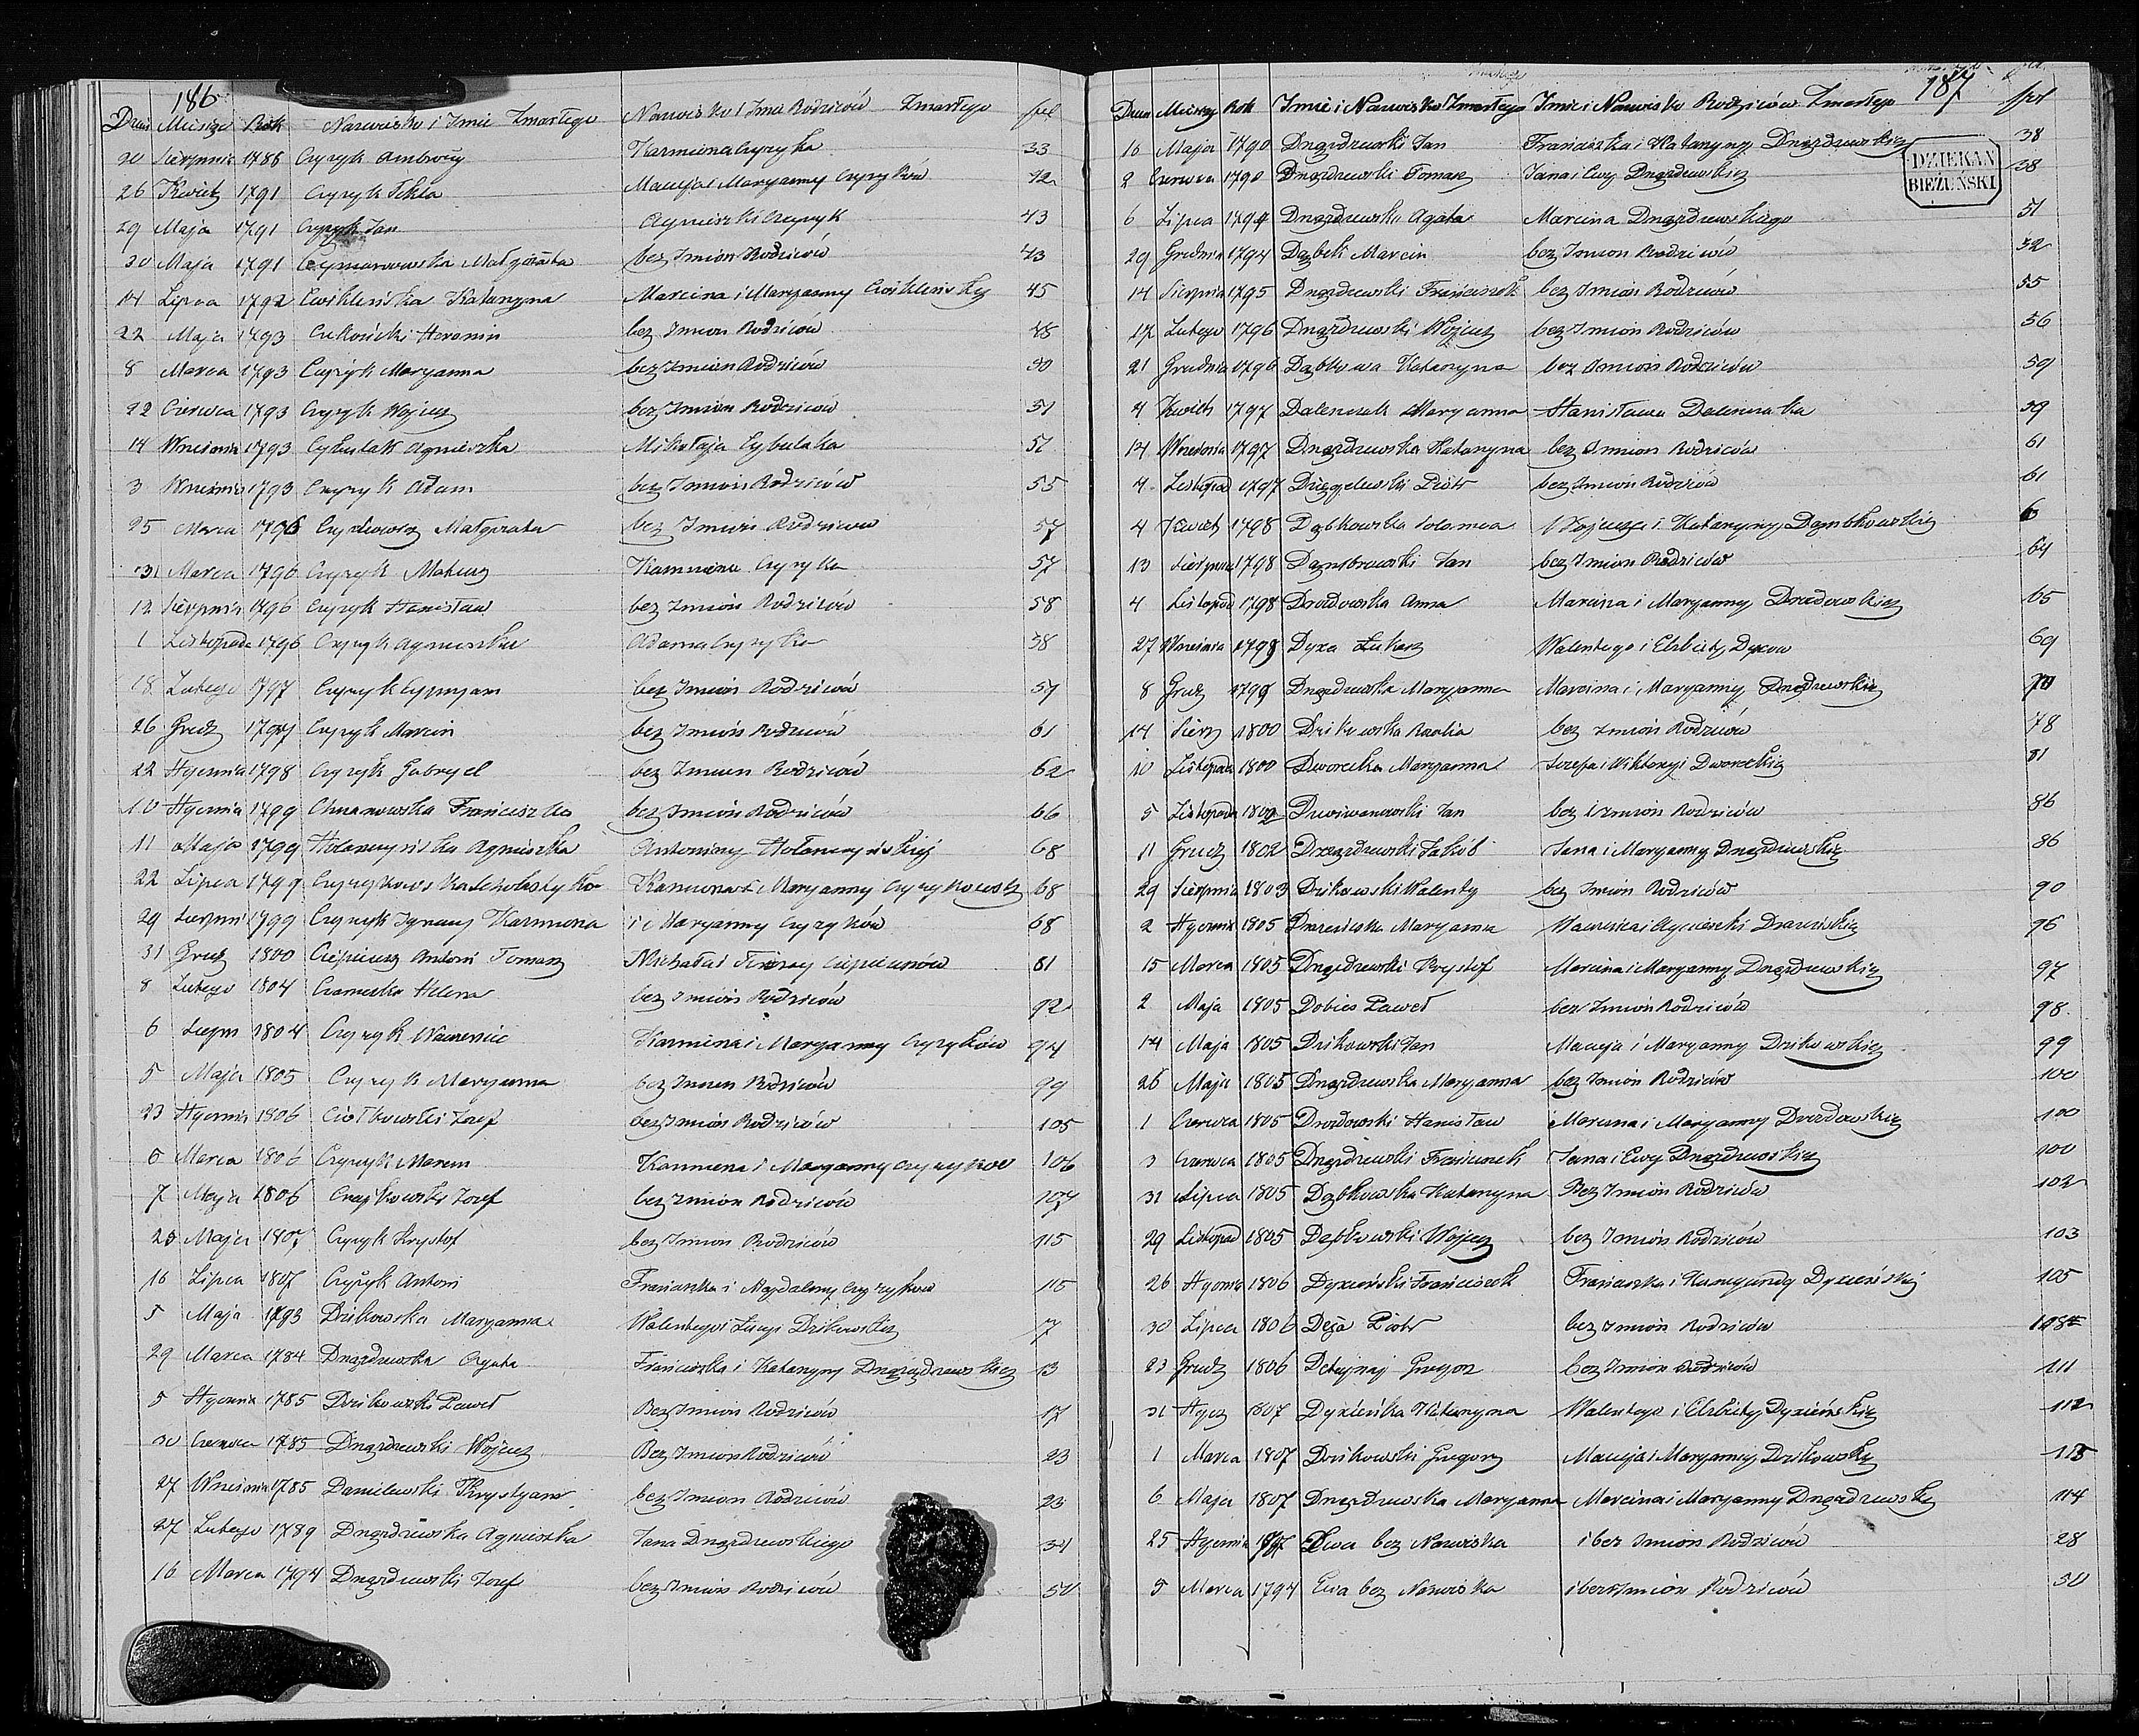 186
Dzień Miesiąc Rok Nazwisko i Imie Zmarłego Nazwisko i Imie Rodziców Zmarłego pag
20 Sierpnia 1788 Czyzyk Ambroży Kazmierza Czyzyka 33
26 Kwiet 1791 Czyzyk Tekla Macieja i Maryanny Czyzyków 42
29 Maja 1791 Czyzyk Jan Agnieszki Czyzyk 43
30 Maja 1791 Małgorzata bez Imion Rodziców 43
14 Lipca 1792 Cwiklińska Katarzyna Marcina i Maryanny Cwiklińskich 45
22 Maja 1793 bez Imion Rodziców 48
8 Marca 1793 Czyzyk Maryanna bez Imion Rodziców 50
22 Czerwca 1793 Czyzyk Wojciech bez Imion Rodziców 51
14 Wrześnie 1793 Cybulak Agnieszka Mikołaja Cybulaka 51
3 Wrześnie 1793 Czyzyk Adam bez Imion Rodziców 55
25 Marca 1796 Małgorzata bez Imion Rodziców 57
31 Marca 1796 Czyzyk Mateusz Kazmierza Czyzyka 57
12 Sierpnia 1796 Czyzyk Stanisław bez Imion Rodziców 58
1 Listopada 1796 Czyzyk Agnieszka Adama Czyzyka 58
18 Lutego 1797 Czyzyk Cypryan bez Imion Rodziców 57
26 Grudz 1797 Czyzyk Marcin bez Imion Rodziców 61
22 Stycznia 1798 Czyzyk Gabryel bez Imion Rodziców 62
10 Stycznia 1799 Chmanowska Franciszka bez Imion Rodziców 66
11 Maja 1799 Hołanczyńska Agnieszka Antoniny Hołanczyńskiej 68
22 Lipca 1799 Czyzykowska Scholastyka Kazmierza i Maryanny Czyzykowskich 68
29 Sierpni 1799 Czyzyk Ignacy Kazmierza i Maryanny Czyzyków 68
31 Grudz 1800 Antoni Tomasz Michała i Teresy 81
8 Lutego 1804 Czarnecka Helena bez Imion Rodziców 92
6 Sierpn 1804 Czyzyk Wawrzeniec Kazmierza i Maryanny Czyzyków 94
5 Maja 1805 Czyzyk Maryanna bez Imion Rodziców 99
23 Stycznia 1806 Ciołkowski Jozef bez Imion Rodziców 105
6 Marca 1806 Czyzyk Marcin Kazmierza i Maryanny Czyzyków 106
7 Maja 1806 Czaykowski Jozef bez Imion Rodziców 107
25 Maja 1807 Czyzyk Krystof bez Imion Rodziców 115
16 Lipca 1807 Czyzyk Antoni Franciszka i Magdaleny Czyzyków 115
5 Maja 1793 Dzikowska Maryanna Walentego i Łucyi Dzikowskich 7
29 Marca 1784 Drążdzewska Agata Franciszka i Katarzyny Drążdzewskich 13
5 Stycznia 1785 Dzikowski Paweł Bez Imion Rodziców 17
30 Czerwca 1785 Drążdzewski Wojciech Bez Imion Rodziców 23
27 Wrześnie 1785 Danilewski Krystyan bez Imion Rodziców 23
27 Lutego 1789 Drążdzewska Agnieszka Jana Drążdzewskiego 34
16 Marca 1794 Drążdzewski Jozef bez Imion Rodziców 51
187
Dzien Miesiąc Rok Imie i Nazwisko Zmarłego Imie i Nazwisko Rodziców Zmarłego pag
DZIEKAN
BIEŻUŃSKI
16 Maja 1790 Drążdzewski Jan Franciszka i Katarzyny Drążdzewskich 38
2 Czerwca 1790 Drążdzewski Tomasz Jana i Ewy Drążdzewskich 38
6 Lipca 1794 Drążdzewska Agata Marcina Drążdzewskiego 51
29 Grudnia 1794 Dąbek Marcin bez Imion Rodziców 52
14 Sierpnia 1795 Drążdzewski Franciszek bez Imion Rodziców 55
12 Lutego 1796 Drążdzewski Wojciech bez Imion Rodziców 56
21 Grudnia 1796 Dąbkowa Katarzyna bez Imion Rodziców 59
4 Kwiet 1797 Dalenczak Maryanna Stanisława Dalenczaka 59
14 Wrześnie 1797 Drążdzewska Katarzyna bez Imion Rodziców 61
4 Listopad 1797 Piotr bez Imion Rodziców 61
4 Kwiet 1798 Dąbkowska Salomea Wojciecha i Katarzyny Dąmbkowskich 6
13 Sierpnia 1798 Dąmbrowski Jan bez Imion Rodziców 64
4 Listopad 1798 Drozdowska Anna Marcina i Maryanny Drozdowskich 65
27 Wrześnie 1799 Dyza Łukasz Walentego i Elzbiety Dyzow 69
8 Grudz 1799 Drążdzewska Maryanna Marcina i Maryanny Drążdzewskich 70
14 Sierp 1800 Dzikowska Rozalia bez Imion Rodziców 78
10 Listopada 1800 Dworecka Maryanna Jozefa i Wiktoryi Dworeckich 81
5 Listopada 1802 Jan bez Imion Rodziców 86
11 Grudz 1802 Drążdzewski Jakób Jana i Maryanny Drążdzewskich 86
29 Sierpnia 1803 Dzikowski Walenty bez Imion Rodziców 90
2 Stycznia 1805 Maryanna 96
15 Marca 1805 Drążdzewski Krystof Marcina i Maryanny Drążdzewskich 97
2 Maja 1805 Dobies Paweł bez Imion Rodziców 98
14 Maja 1805 Dzikowski Jan Macieja i Maryanny Dzikowskich 99
26 Maja 1805 Drążdzewska Maryanna bez Imion Rodziców 100
1 Czerwca 1805 Drozdowski Stanisław Marcina i Maryanny Drozdowskich 100
3 Czerwca 1805 Drążdzewski Franciszek Jana i Ewy Drążdzewskich 100
31 Lipca 1805 Dąbkowska Katarzyna Bez Imion Rodziców 102
29 Listopad 1805 Dąbkowski Wojciech bez Imion Rodziców 103
26 Stycznia 1806 Dyzieński Franciszek Franciszka i Kunegundy Dyzieńskich 105
30 Lipca 1806 Deza Piotr bez Imion Rodziców 108
23 Grudz 1806 Gregorz bez Imion Rodziców 111
31 Stycz 1807 Dyzieńska Katarzyna Walentego i Elzbiety Dyzieńskich 112
1 Marca 1807 Dzikowski Gregorz Macieja i Maryanny Dzikowskich 113
6 Maja 1807 Drążdzewska Maryanna Marcina i Maryanny Drążdzewskich 114
25 Stycznia Ewa bez Nazwiska i bez Imion Rodziców 28
5 Marca 1794 Ewa bez Nazwiska i bez Imion Rodziców 50